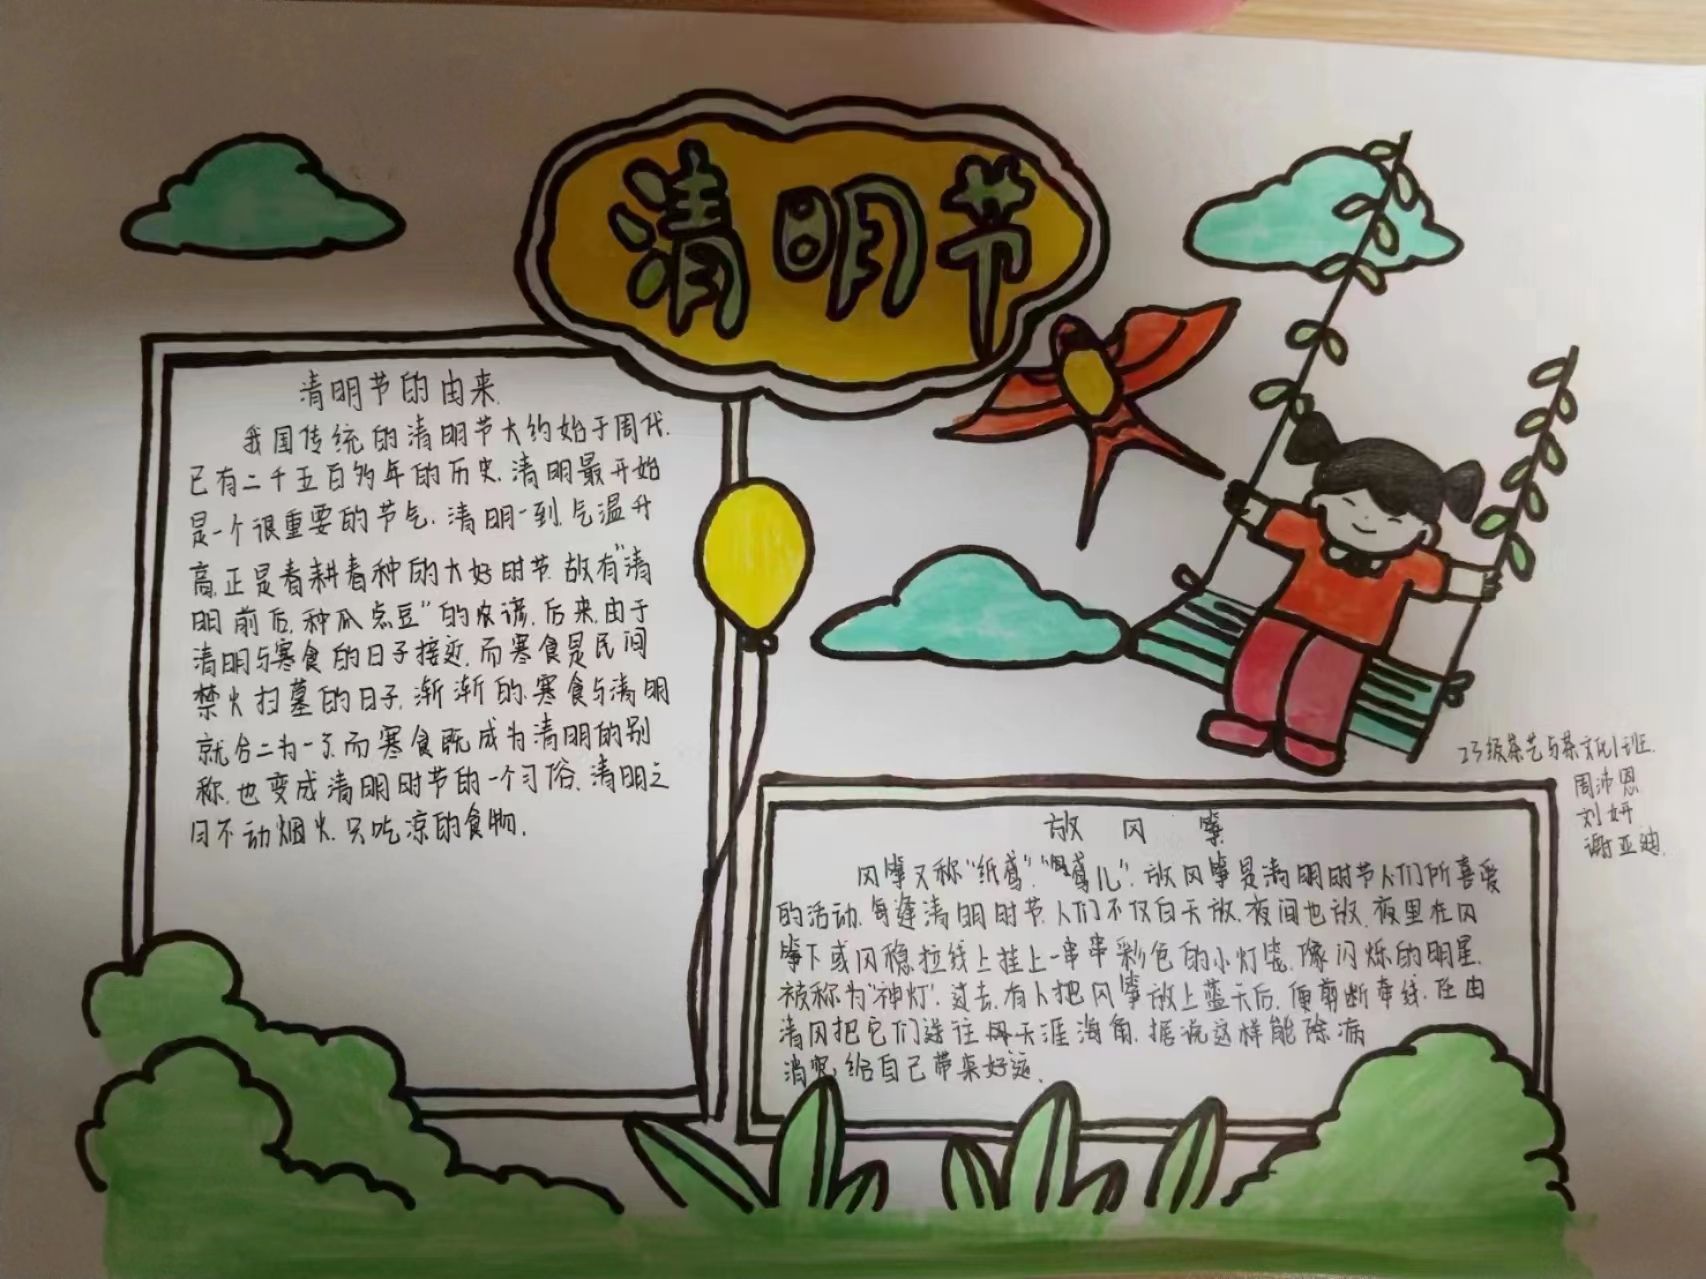 清明节
清明节的由来.
我国传统的清明节大约始于周代.
已有二千五百多年的历史.清明最开始
是一个很重要的节气.清明一到.气温升
高.正是春耕春种的大好时节.故有"清
明前后,种瓜点豆"的农谚.后来.由于
清明与寒食的日子接近.而寒食是民间
禁火扫墓的日子.渐渐的.寒食与清明
就合二为一了.而寒食既成为清明的别
称.也变成清明时节的一个习俗.清明之
日不动烟火.只吃凉的食物.
23级茶艺与茶文化1班.
周沛恩
刘妍
谢亚迪.
放风筝
风筝又称"纸鸢""鸢儿".放风筝是清明时节人们所喜爱
的活动.每逢清明时节.人们不仅白天放.夜间也放.夜里在风
筝下或风稳拉线上挂上一串串彩色的小灯笼.像闪烁的明星.
被称为"神灯".过去.有人把风筝放上蓝天后.便剪断牵线.任由
清风把它们送往天涯海角.据说这样能除病
消灾.给自己带来好运.